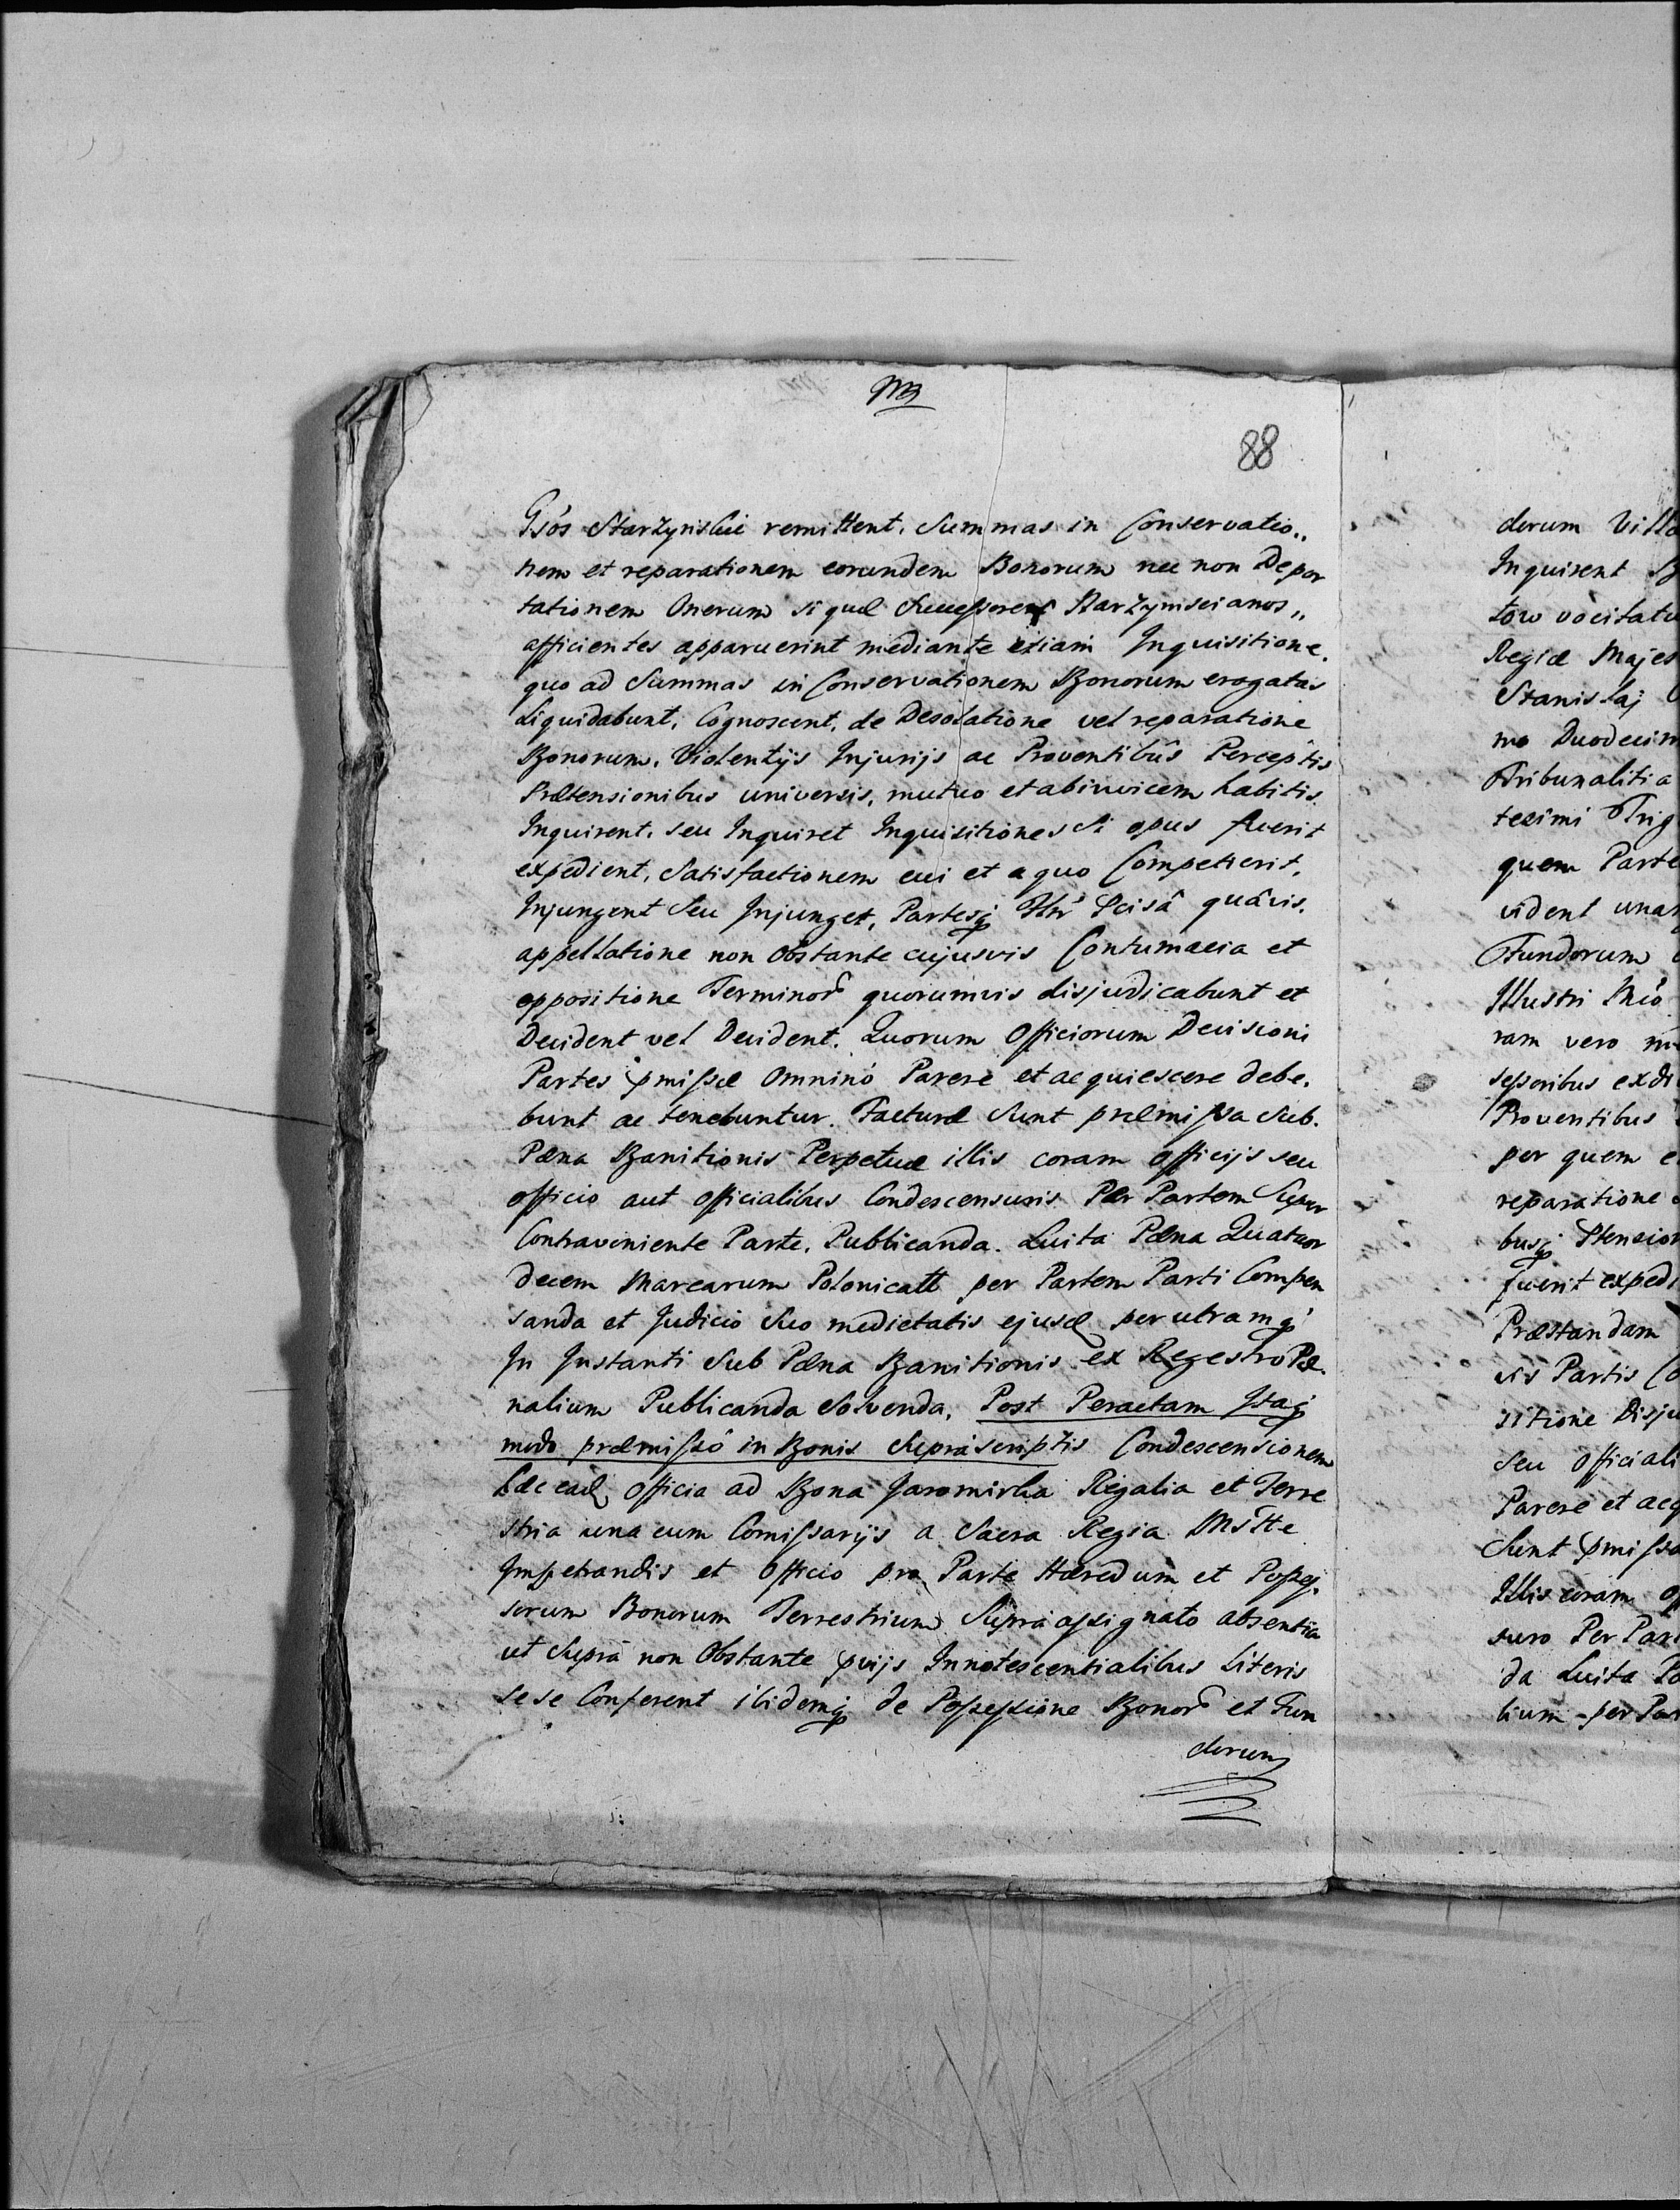 NB
88
Gsós Starzynskie remittent. Summas in Conservatio„
nem et reparationem eorundem Bonorum nec non Depor
tationem Onerum si quæ Successores Starzynscianos„
afficientes apparuerint mediante etiam Inquisitione.
quo ad Summas in Conservationem Bonorum erogatas
Liquidabunt, Cognoscent, de Desolatione vel reparatione
Bonorum. Violentijs Injurijs ac Proventibûs Perceptis
Prætensionibus universis, mutuo et abinvicem habitis.
Inquirent. seu Inquiret Inquisitiones Si opus fuerit
expedient, Satisfactionem cui et a quo Competierit.
Injungent Seu Injunget, Partesq Scisâ quâvis.
appellatione non Obstante cujusvis Contumacia et
oppositione Terminor quorumvis disjudicabunt et
Decident vel Decident. Quorum Officiorum Decisioni
Partes pmissæ Omninò Parere et acquiescere debe.
bunt ac tenebuntur. Facturæ Sunt præmissa Sub.
Pæna Banitionis Perpetuæ illis coram Officijs seu
officio aut officialibus Condescensuris Per Partem Super
Contraveniente Parte. Publicanda. Luita Pæna Quatuor
decem Marcarum Polonicall per Partem Parti Compen
sanda et Judicio Suo medietatis ejusd per utramq
In Instanti Sub Pæna Banitionis ex Regestro Pæ
nalium Publicanda Solvenda, Post Peractam Itaq
modo præmissô in Bonis Supràscriptis Condescensionem
hæc ead Officia ad Bona Jaromirka Regalia et Terre
stria una cum Comissarijs a Sacra Regia Mstte
Impetrandis et Officio pro Parte Hæredum et Posses.
sorum Bonorum Terrestrium Supra assignato absentia
ut Suprà non Obstante pvijs Innotescentialibus Literis
sese Conferent ibidemq de Possessione Bonor et Fun
dorum
dorum Villa
Inquirent
tow vocitatu
Regiæ Majes
Stanislaj
mo Duodecim
Tribunalitia
tesimi Trig
quem Parte
vident unan
Fundorum
Illustri Mco
ram vero
sessoribus
Proventibus
per quem e
reparatione
busq Ptension
fuerit expedi
Præstandam
vis Partis Co
sitione Disju
Seu Officiali
Parere et acq
Sunt pmissa
Illis coram
suro Per Par
da Luita Pæ
lium per Par